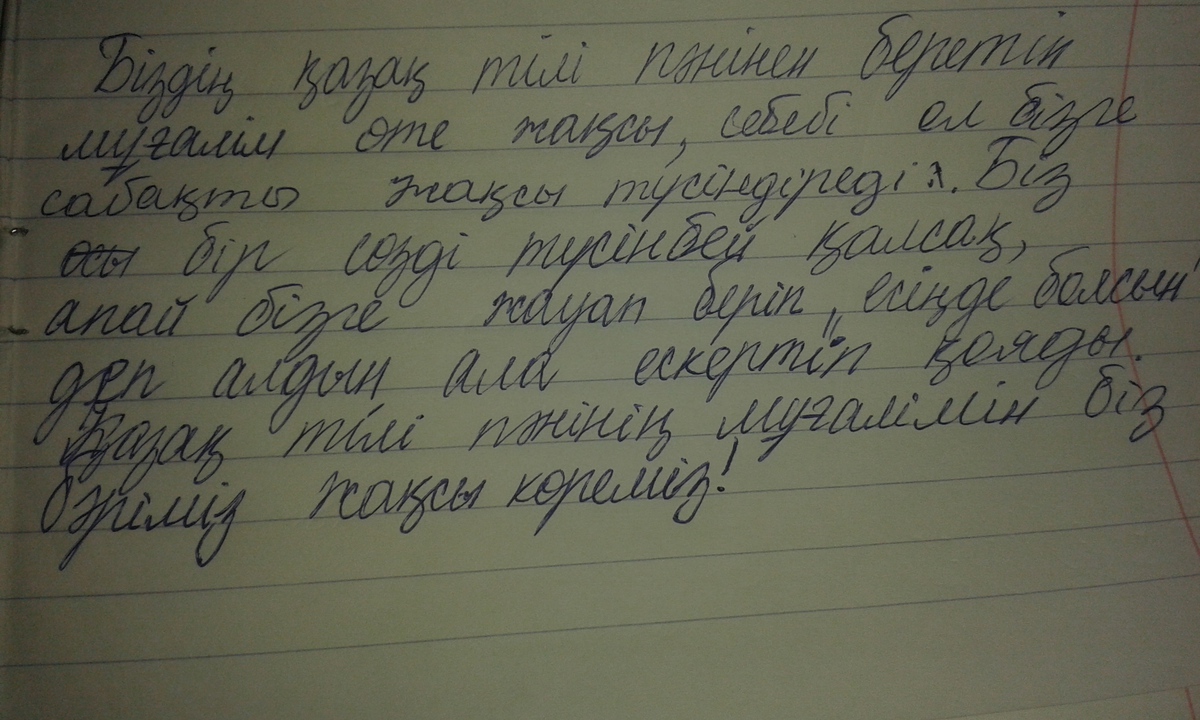 Біздің қазақ тілі пәнінен беретін
мұғалім өте жақсы, себебі ол бізге
сабақты жақсы түсіндіреді. Біз
бір сөзді түсінбей қалсақ,
апай бізге жауап беріп „есіңде болсын"
деп алдын ала ескертіп қояды.
Қазақ тілі пәнінің мұғалімін біз
бәріміз жақсы көреміз!